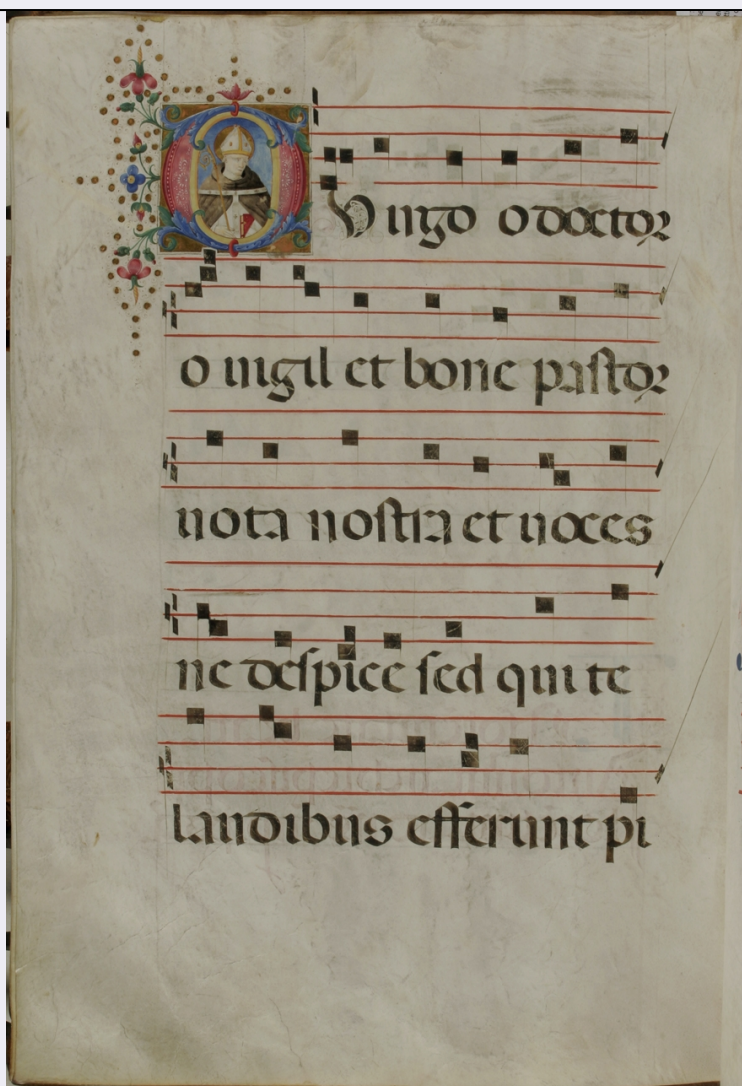 O Virgo o doctor
o vigil et bone pastor
vota nostra et voces
ne despice sed qui te
laudibus efferunt pi